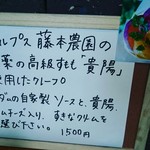 ルプス 藤本農園の
高級すもも「貴陽」
使用したクレープ
自家製 ソースと、貴陽、
ムチーズ入り、すきなクリームを
選び下さい。 1500円